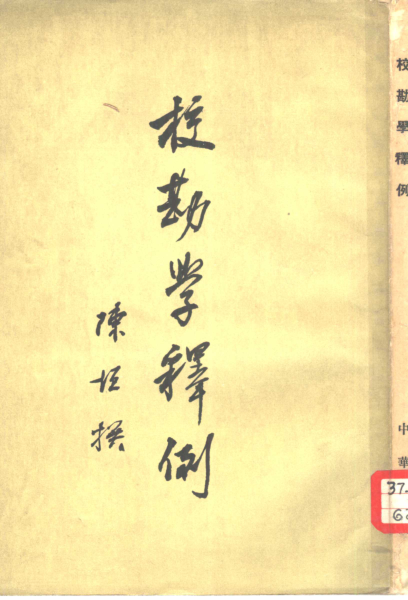 校勘学釋例
陳垣撰
校勘學釋例
中華
37